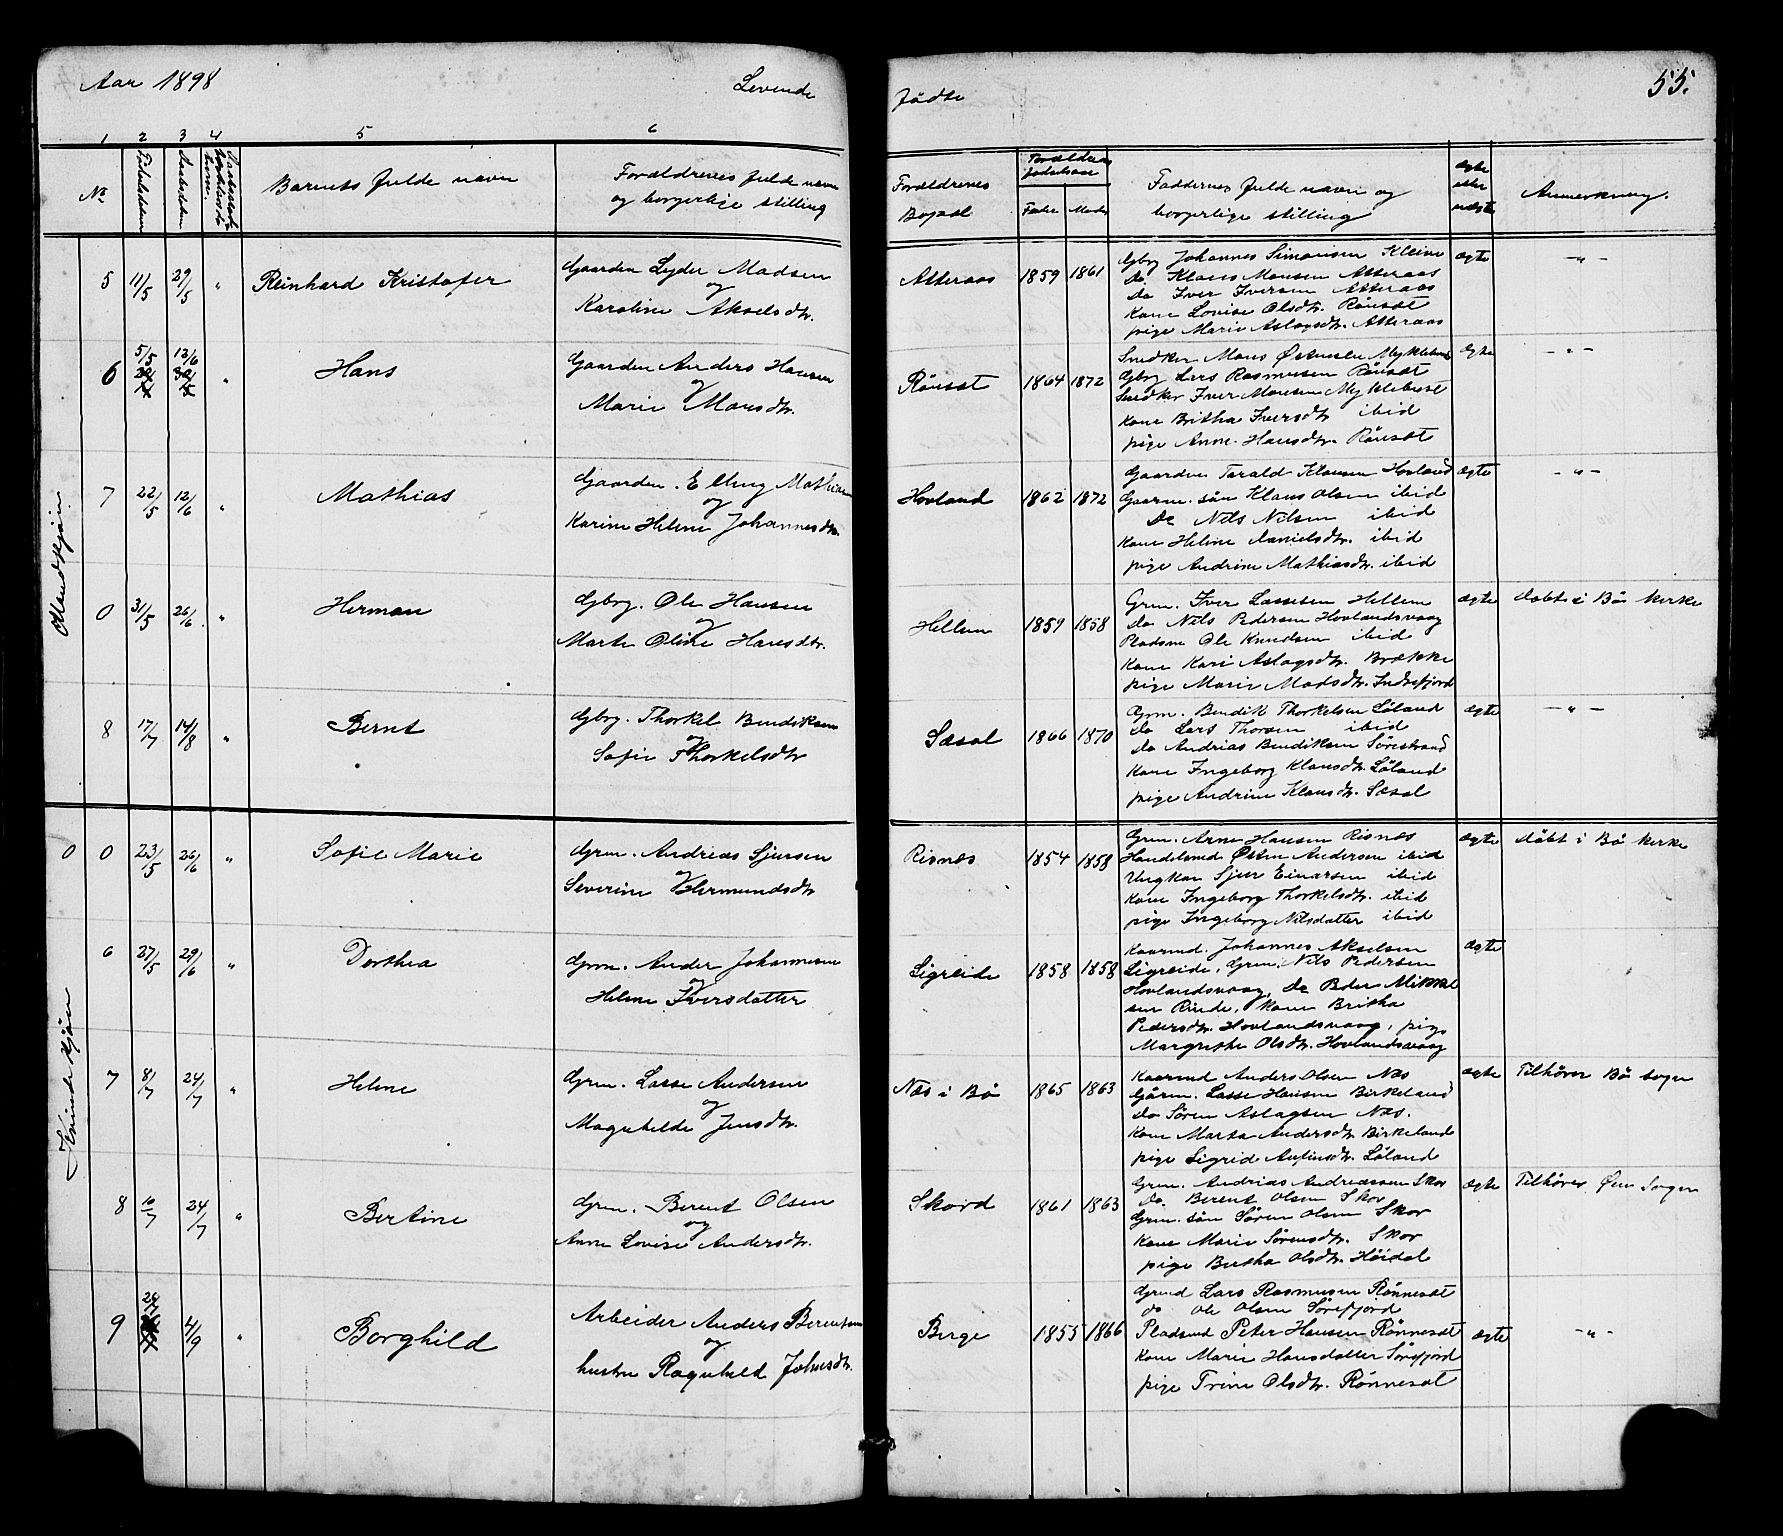 Aar 1898 Levende fødte 55.
1 2 3 4 5 6
No Fødselsdatum Daabsdatum Barnets fulde navn Forældrenes fulde navn
og borgerlige stilling
Forældrenes Bopæl Forældrenes fødselsaar Fader Moder Faddernes fulde navn og
borgerlige stilling ægte eller uægte Anmerkning.
Mandkjøn
5 11/5 29/5 " Reinhard Kristofer Gaardm. Lyder Madsen
og
Karoline Akselsdtr.
Atteraas 1859 1861 Gbrg Johannes Simonsen Kleiva ægte - " -
do. Klaus Monsen Atteraas
do Iver Iversen Atteraas
kone Lovise Olsdtr. Rønset
pige Marie Aslagsdtr. Atteraas
6 5/5 12/6 " Hans Gaardm Anders Hansen
og
Marie Monsdtr.
Rønset 1864 1872 Snedker Mons Østensen Myklebust ægte - " -
Gbrg Lars Rasmusen Rønset
Snedker Iver Monsen Myklebust
kone Britha Iversdtr ibid
pige Anne Hansdtr. Rønset
7 22/5 12/6 " Mathias Gaardm. Elling Mathiasen
og
Karine Helene Johannesdtr.
Hovland 1862 1872 Gaardm Tarald Klausen Hovland ægte - " -
Gaarm. søn Klaus Olsen ibid
Do Nils Nilsen ibid
kone Helene Danielsdtr. ibid
pige Andrine Mathiasdtr. ibid
0 31/5 26/6 " Herman Gbrg. Ole Hansen
og
Marte Oline Hansdtr.
Hellem 1859 1858 Grm. Iver Lassesen Hellem ægte Døbt i Bø kirke
do Nils Pedersen Hovlandsvaag
Pladsm Ole Knudsen ibid
kone Kari Aslagsdtr. Brække
pige Marie Madsdtr. Indrefjord
8 17/7 14/8 " Bernt Gbrg. Thorkel Bendiksen
og
Sofie Thorkelsdtr
Sæsol 1866 1870 Grm. Bendik Thorkelsen Løland ægte - " -
do Lars Thorsen ibid
do Andrias Bendiksen Sørestrand
kone Ingeborg Klausdtr. Løland
pige Andrine Klausdtr. Sæsol
Kvindekjøn
0 0 23/5 26/6 " Sofie Marie Grm. Andreas Sjursen
og
Severine Hermundsdtr
Risnes 1854 1858 Grm. Arne Hansen Risnes ægte døbt i Bø kirke
Handelsmd Østen Andersen ibid
Ungkar Sjur Einarsen ibid
kone Ingeborg Thorkelsdtr. ibid
pige Ingeborg Nilsdatter ibid
6 27/5 29/6 " Dorthea Grm. Ander Johannesen
og
Helene Iversdatter
Ligreide 1858 1858 Kaarmd. Johannes Akselsen ægte
Ligreide, Grm. Nils Pedersen
Hovlandsvaag, do Peder Mikkel
sen Rinde, kone Britha
Pedersdtr. Hovlandsvaag, pige
Margrethe Olsdtr. Hovlandsvaag
7 8/7 24/7 " Helene Grm. Lasse Andersen
og
Magnhilde Jensdtr.
Næs i Bø 1865 1863 Kaarmd Anders Olsen Næs ægte Tilhører Bø sogn
Gårm. Lasse Hansen Birkeland
do Søren Aslagsen Næs.
kone Marta Andersdtr. Birkeland
pige Sigrid Anfinsdtr. Løland
8 10/7 24/7 " Bertine Grm. Berent Olsen
og
Anne Lovise Andersdtr.
Skord 1861 1863 Grm. Andrias Andreassen Skor ægte Tilhører Øen Sogn
do. Berent Olsen Skor
Grm. søn Søren Olsen Skor
kone Marie Sørensdtr. Skor
pige Bertha Olsdtr. Høidal
9 4/9 " Borghild Arbeider Anders Berentsen
og
hustru Ragnhild Johnsdtr.
Berge 1855 1866 Grmd Lars Rasmusen Rønneset ægte - " -
do Ole Olsen Sørefjord
Pladsmd Peter Hansen Rønneset
kone Marie Hansdatter Sørefjord
pige Trine Olsdtr. Rønneset